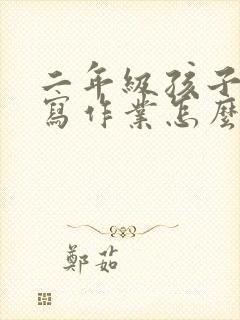 二年級孩子
寫作業怎麼
鄭茹